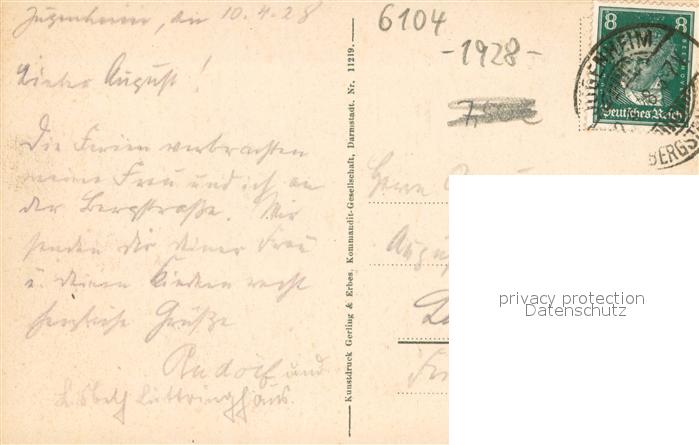 Jugenheim, den 10.4.28
Lieber August!
Die Ferien verbrachten
meine Frau und ich an
der Bergstraße. Wir
senden dir deiner Frau
u. deinen Kindern recht
herzliche Grüße
Rudolf und
Lisbeth Lüttringhaus.
Kunstdruck Gerling & Erbes, Kommandit-Gesellschaft, Darmstadt. Nr. 11219.
6104
-1928-
8 8
Deutsches Reich
JUGENHEIM
BERGS
Herrn
August
privacy protection
Datenschutz